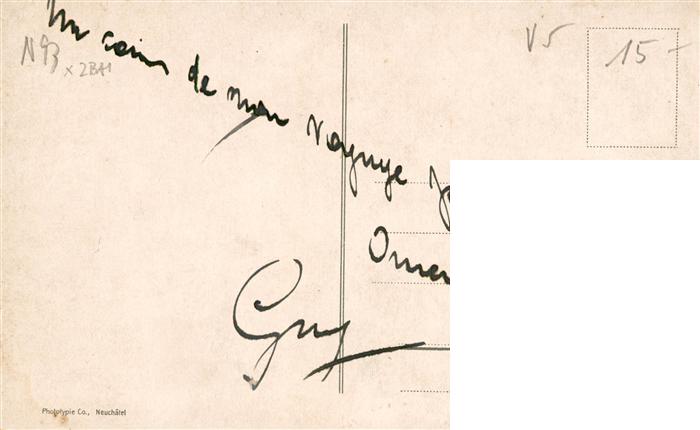 Un coin de mon voyage
Guy
N93
x 2BA1
V5
15-
Phototypie Co., Neuchâtel